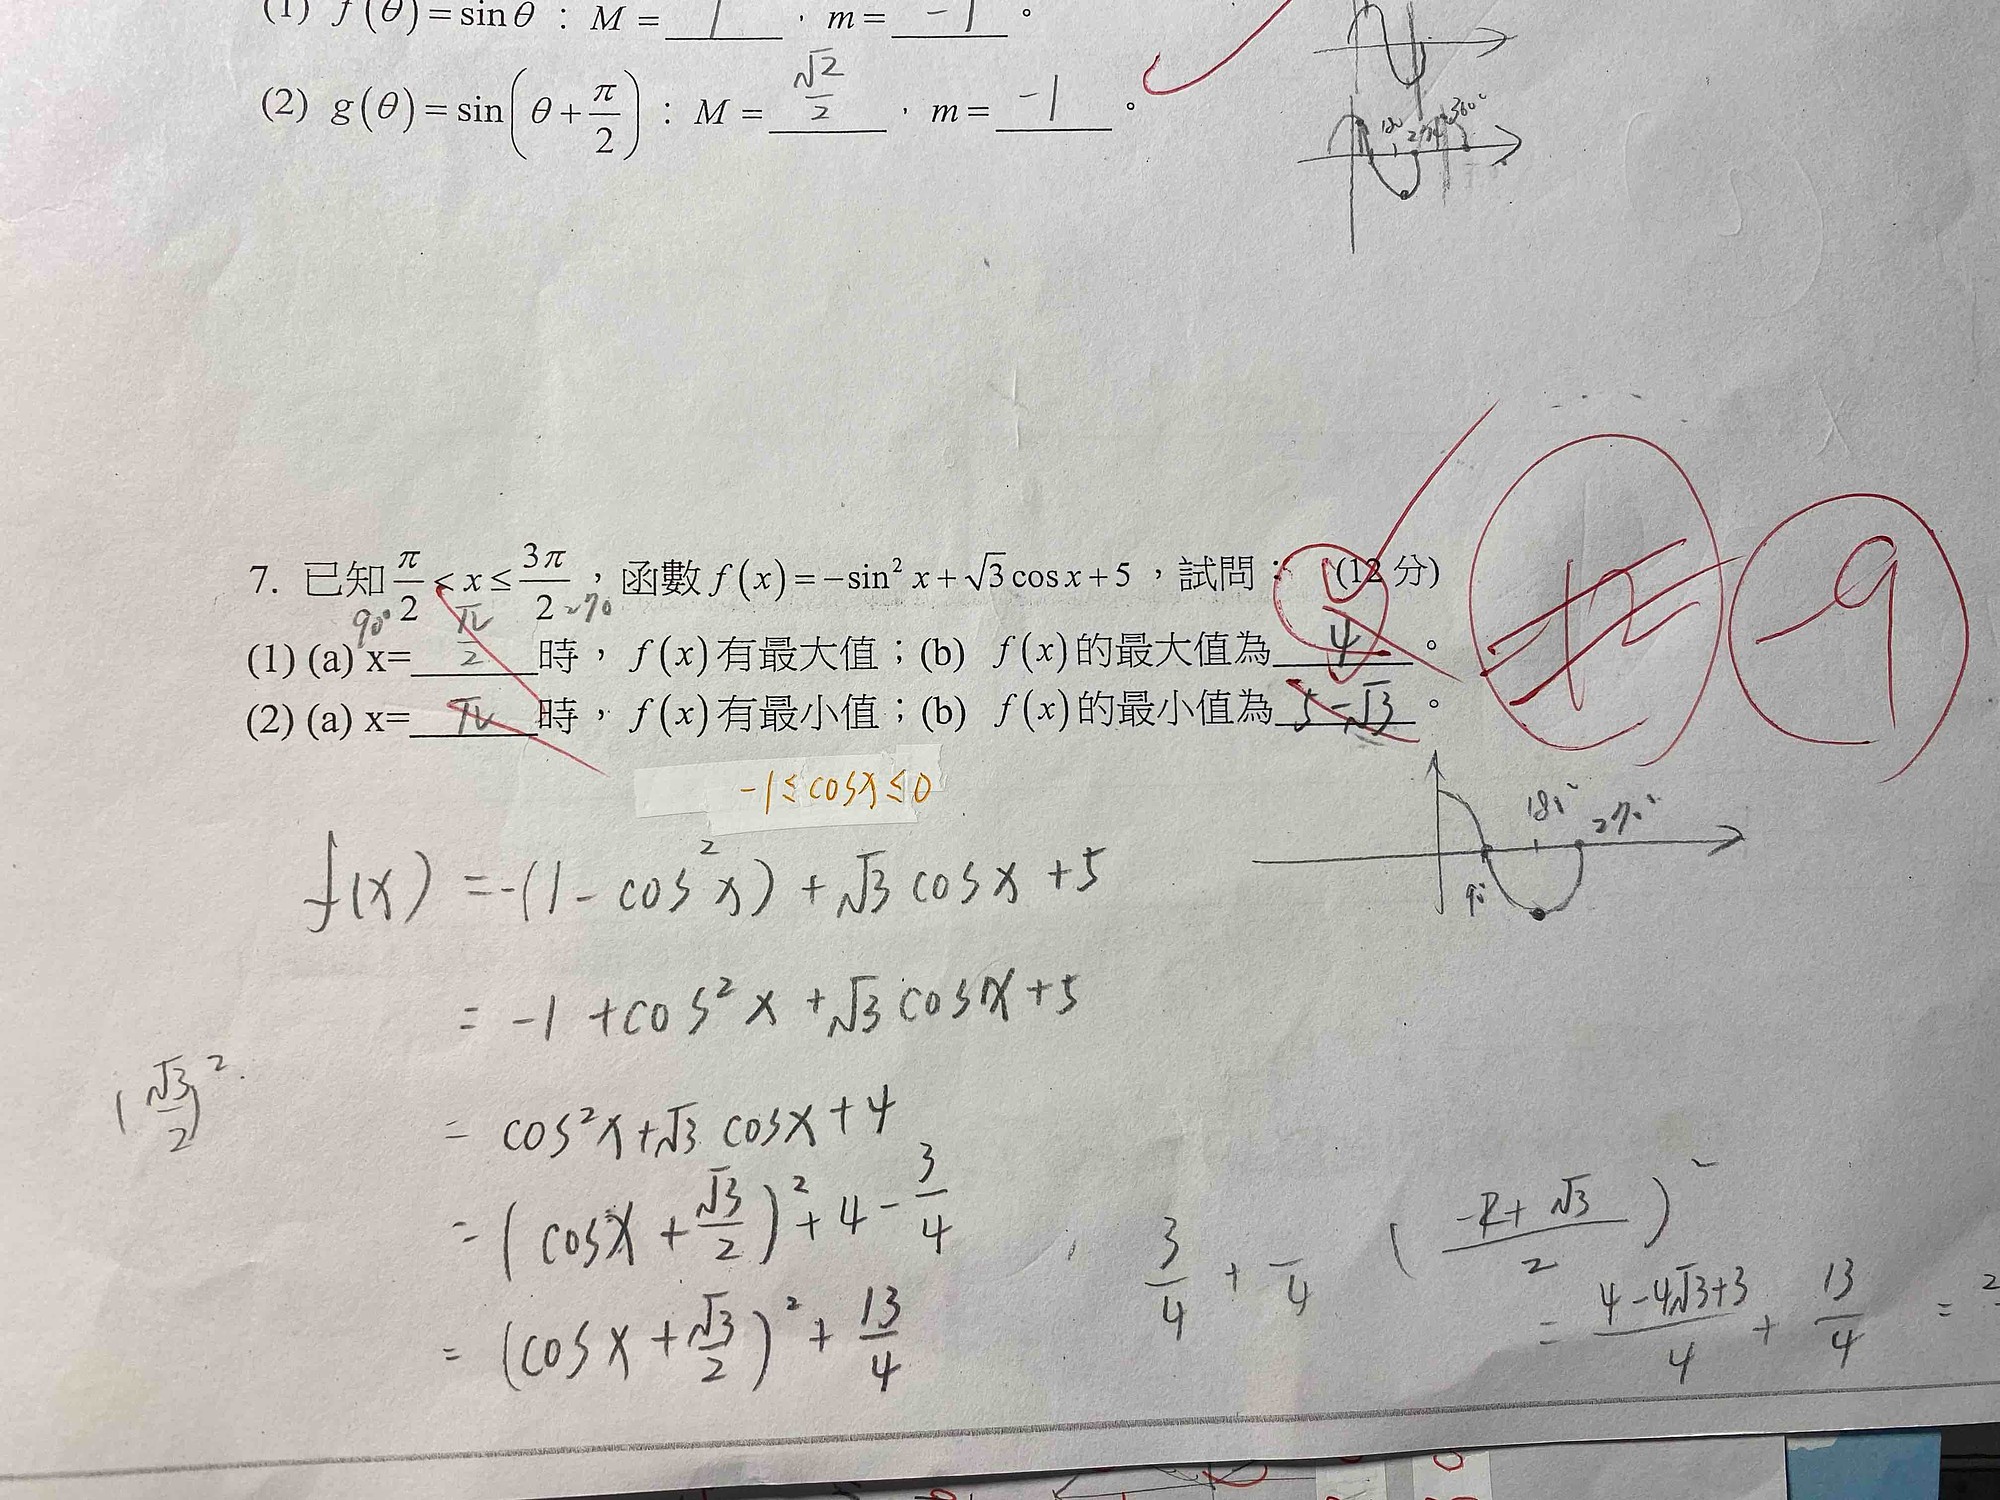 (1) f(θ)=sinθ : M= 1 , m= -1 。
(2) g(θ)=sin(θ+π/2) : M= √2/2 , m= -1 。
360°
7. 已知 π/2 < x ≤ 3π/2 , 函數 f(x)=-sin²x+√3cosx+5 , 試問: (12分)
90° 270
(1) (a) x= π/2 時, f(x)有最大值; (b) f(x)的最大值為 4 。
(2) (a) x= π 時, f(x)有最小值; (b) f(x)的最小值為 5-√3 。
-9
-1≤cosx≤0
180° 270°
90°
f(x) =-(1-cos²x)+√3cosx+5
= -1+cos²x+√3cosx+5
(√3/2)²
= cos²x+√3cosx+4
= (cosx+√3/2)²+4-3/4
3/4 + /4
(-2+√3/2)²
= (cosx+√3/2)²+13/4
= 4-4√3+3/4 + 13/4 =